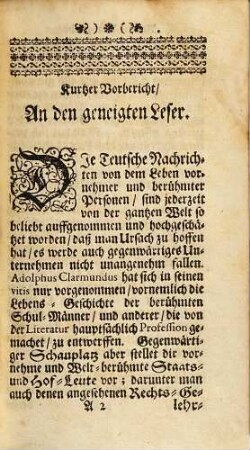 )*(
Kurtzer Vorbericht/
An den geneigten Leser.
DIe Teutsche Nachrich-
ten von dem Leben vor-
nehmer und berühmter
Personen/ sind jederzeit
von der gantzen Welt so
beliebt auffgenommen und hochgeschä-
tzet worden/ daß man Ursach zu hoffen
hat/ es werde auch gegenwärtiges Un-
ternehmen nicht unangenehm fallen.
Adolphus Clarmundus hat sich in seinen
vitis nur vorgenommen/ vornemlich die
Lebens-Geschichte der berühmten
Schul-Männer/ und anderer/ die von
der Literatur hauptsächlich Profession ge-
machet/ zu entwerffen. Gegenwärti-
ger Schauplatz aber stellet dir vor-
nehme und Welt-berühmte Staats-
und Hof-Leute vor; darunter man
auch denen angesehenen Rechts-Ge-
A 2 lehr-